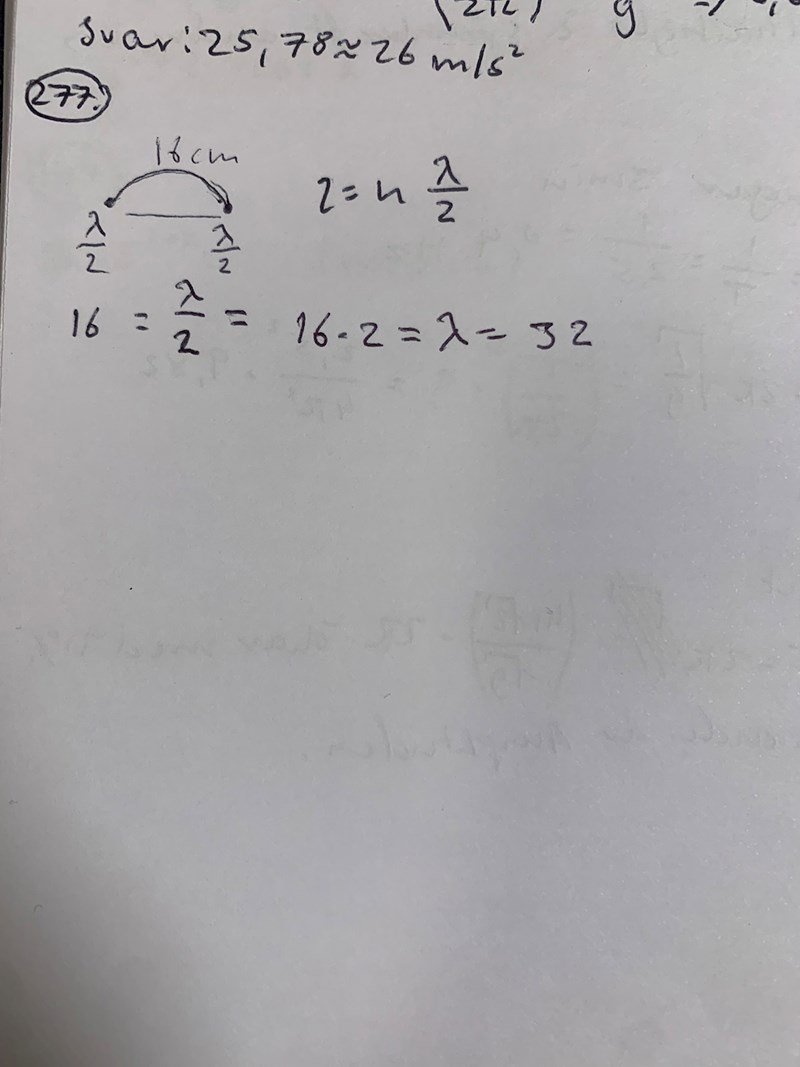 (2π) g →
Svar: 25,78≈26 m/s²
277.
16 cm
l = n λ/2
λ/2 λ/2
16 = λ/2 = 16·2 = λ = 32